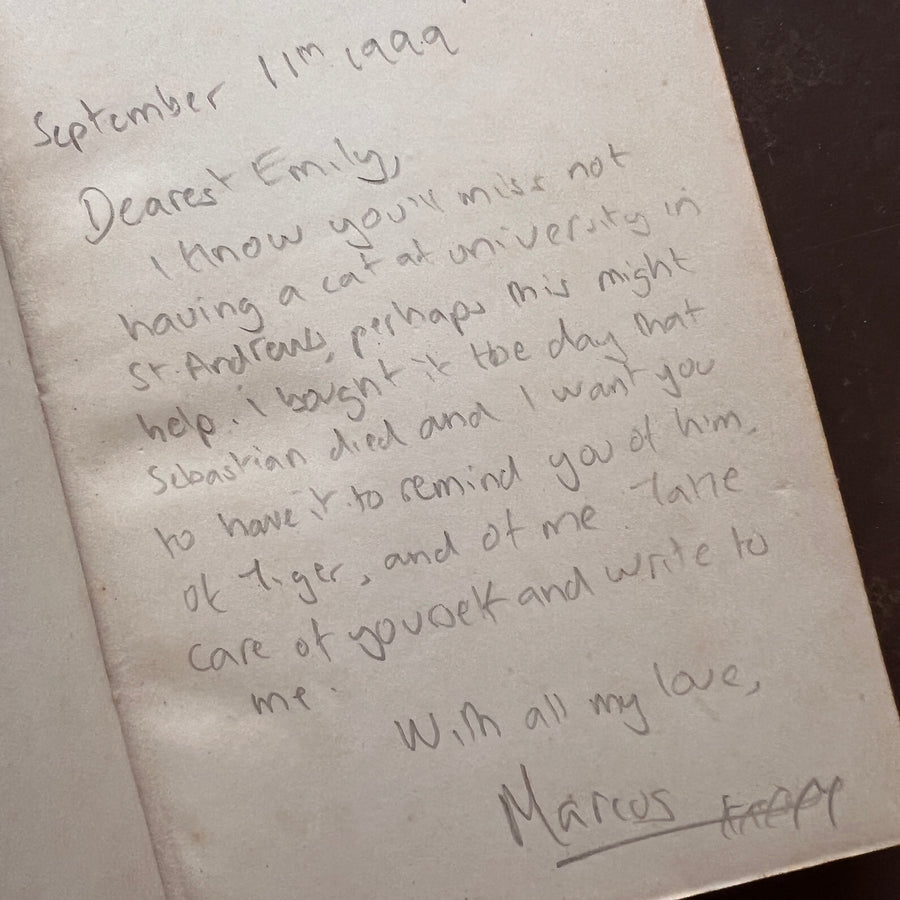 September 11th 1999
Dearest Emily,
I know you'll miss not
having a cat at university in
St. Andrews, perhaps this might
help. I bought it the day that
Sebastian died and I want you
to have it to remind you of him,
of Tiger, and of me. Take
care of yourself and write to
me.
With all my love,
Marcos